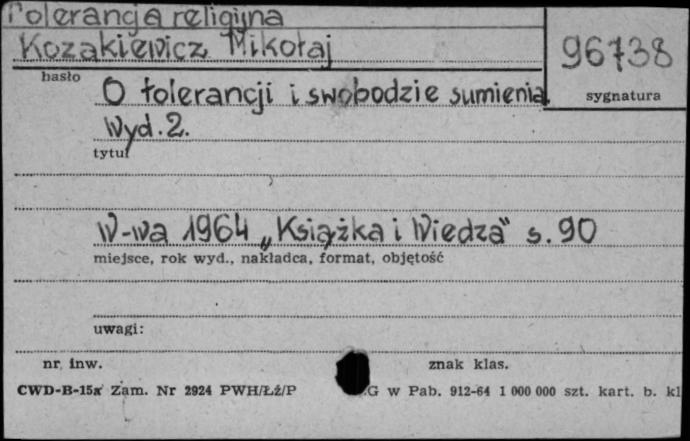 Tolerancja religijna
Kozakiewicz Mikołaj
96738
hasło
sygnatura
O tolerancji i swobodzie sumienia.
Wyd. 2.
tytuł
W-wa 1964 „Książka i Wiedza" s. 90
miejsce, rok wyd., nakładca, format, objętość
uwagi:
nr. inw.
znak klas.
CWD-B-15a Zam. Nr 2924 PWH/Łź/P .G w Pab. 912-64 1 000 000 szt. kart. b. kl